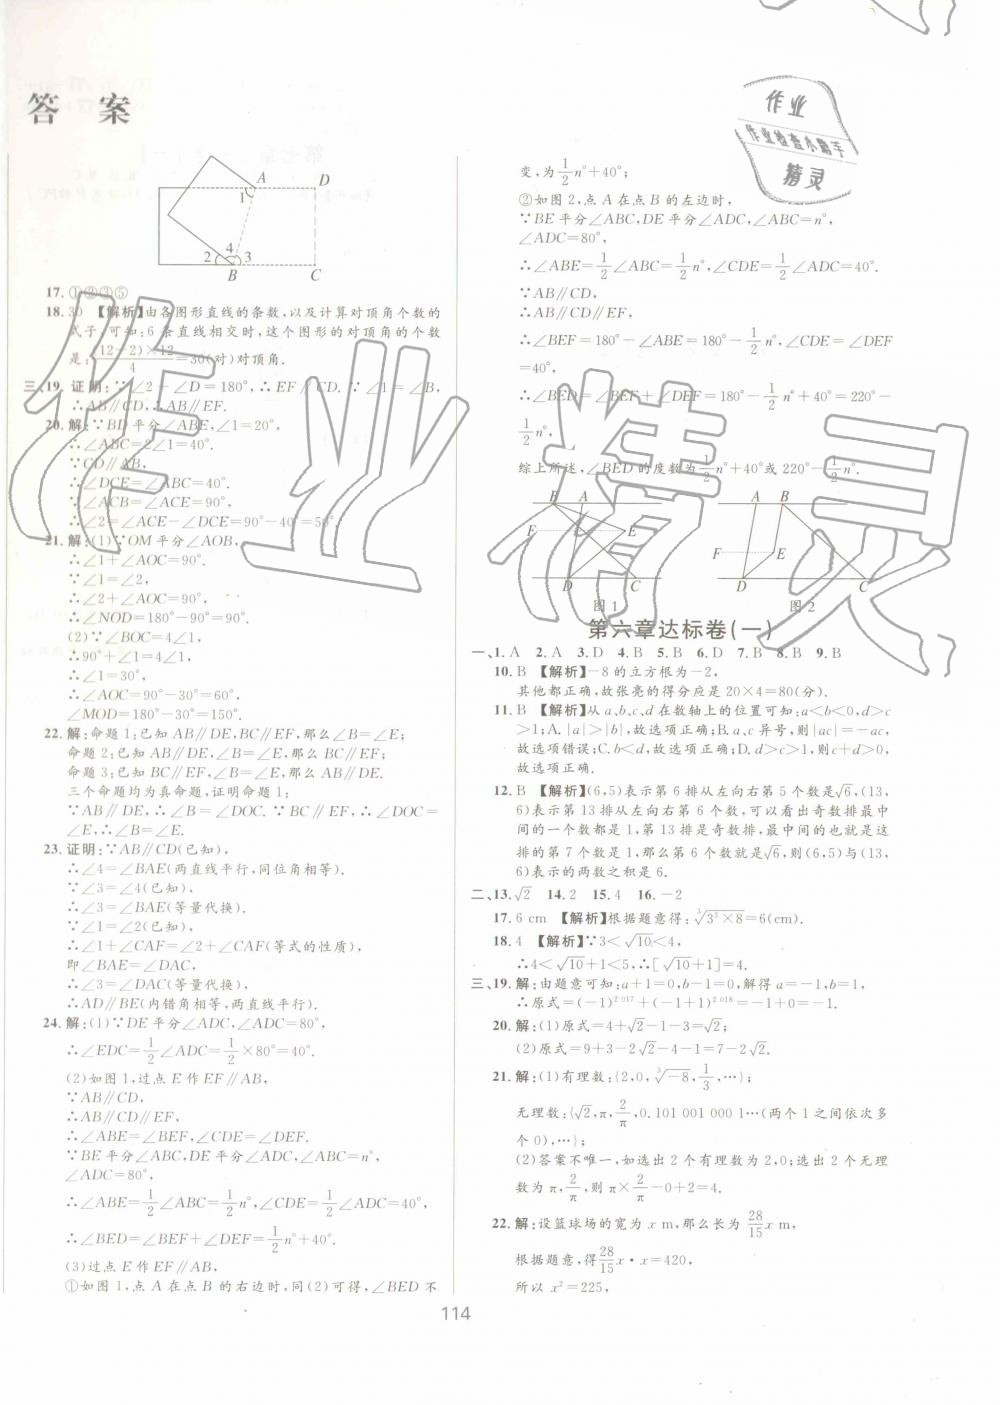 答 案
作业
作业检查小帮手
精灵
A
D
1
2
4
3
B
C
17.①②③⑤
18.30 【解析】由各图形直线的条数,以及计算对顶角个数的
式子,可知:6条直线相交时,这个图形的对顶角的个数
是:(12-2)×12/4=30(对)对顶角.
三、19.证明:∵∠2+∠D=180°,∴EF∥CD.∵∠1=∠B,
∴AB∥CD,∴AB∥EF.
20.解:∵BD平分∠ABE,∠1=20°,
∴∠ABC=2∠1=40°.
∵CD∥AB,
∴∠DCE=∠ABC=40°.
∵∠ACB=∠ACE=90°,
∴∠2=∠ACE-∠DCE=90°-40°=50°.
21.解:(1)∵OM平分∠AOB,
∴∠1+∠AOC=90°.
∵∠1=∠2,
∴∠2+∠AOC=90°,
∴∠NOD=180°-90°=90°.
(2)∵∠BOC=4∠1,
∴90°+∠1=4∠1,
∴∠1=30°,
∴∠AOC=90°-30°=60°,
∠MOD=180°-30°=150°.
22.解:命题1:已知AB∥DE,BC∥EF,那么∠B=∠E;
命题2:已知AB∥DE,∠B=∠E,那么BC∥EF;
命题3:已知BC∥EF,∠B=∠E,那么AB∥DE.
三个命题均为真命题,证明命题1:
∵AB∥DE,∴∠B=∠DOC. ∵BC∥EF,∴∠DOC=
∠E,∴∠B=∠E.
23.证明:∵AB∥CD(已知),
∴∠4=∠BAE(两直线平行,同位角相等).
∵∠3=∠4(已知),
∴∠3=∠BAE(等量代换).
∵∠1=∠2(已知),
∴∠1+∠CAF=∠2+∠CAF(等式的性质),
即∠BAE=∠DAC,
∴∠3=∠DAC(等量代换),
∴AD∥BE(内错角相等,两直线平行).
24.解:(1)∵DE平分∠ADC,∠ADC=80°,
∴∠EDC=1/2∠ADC=1/2×80°=40°.
(2)如图1,过点E作EF∥AB,
∵AB∥CD,
∴AB∥CD∥EF,
∴∠ABE=∠BEF,∠CDE=∠DEF.
∵BE平分∠ABC,DE平分∠ADC,∠ABC=n°,
∠ADC=80°,
∴∠ABE=1/2∠ABC=1/2n°,∠CDE=1/2∠ADC=40°,
∴∠BED=∠BEF+∠DEF=1/2n°+40°.
(3)过点E作EF∥AB,
①如图1,点A在点B的右边时,同(2)可得,∠BED不
变,为1/2n°+40°;
②如图2,点A在点B的左边时,
∵BE平分∠ABC,DE平分∠ADC,∠ABC=n°,
∠ADC=80°,
∴∠ABE=1/2∠ABC=1/2n°,∠CDE=1/2∠ADC=40°.
∵AB∥CD,
∴AB∥CD∥EF,
∴∠BEF=180°-∠ABE=180°-1/2n°,∠CDE=∠DEF
=40°,
∴∠BED=∠BEF+∠DEF=180°-1/2n°+40°=220°-
1/2n°.
综上所述,∠BED的度数为1/2n°+40°或220°-1/2n°.
B A
F E
D C
图1
A B
F E
D C
图2
第六章达标卷(一)
一、1.A 2.A 3.D 4.B 5.B 6.B 7.D 8.B 9.B
10.B 【解析】-8的立方根为-2,
其他都正确,故张亮的得分应是20×4=80(分).
11.B 【解析】从a,b,c,d在数轴上的位置可知:a<b<0,d>c
>1;A.|a|>|b|,故选项正确;B.a、c异号,则|ac|=-ac,
故选项错误;C.b<d,故选项正确;D.d>c>1,则c+d>0,
故选项正确.
12.B 【解析】(6,5)表示第6排从左向右第5个数是√6,(13,
6)表示第13排从左向右第6个数,可以看出奇数排最中
间的一个数都是1,第13排是奇数排,最中间的也就是这
排的第7个数是1,那么第6个数就是√6,则(6,5)与(13,
6)表示的两数之积是6.
二、13.√2 14.2 15.4 16.-2
17.6 cm 【解析】根据题意得:∛(3³×8)=6(cm).
18.4 【解析】∵3<√10<4,
∴4<√10+1<5,∴[√10+1]=4.
三、19.解:由题意可知:a+1=0,b-1=0,解得a=-1,b=1,
∴原式=(-1)²⁰¹⁷+(-1+1)²⁰¹⁸=-1+0=-1.
20.解:(1)原式=4+√2-1-3=√2;
(2)原式=9+3-2√2-4-1=7-2√2.
21.解:(1)有理数:{2,0,∛-8,1/3,…};
无理数:{√2,π,2/π,0.101 001 000 1…(两个1之间依次多
个0),…};
(2)答案不唯一,如选出2个有理数为2,0;选出2个无理
数为π,2/π,则π×2/π-0+2=4.
22.解:设篮球场的宽为x m,那么长为28/15x m,
根据题意,得28/15x·x=420,
所以x²=225,
114
作业精灵